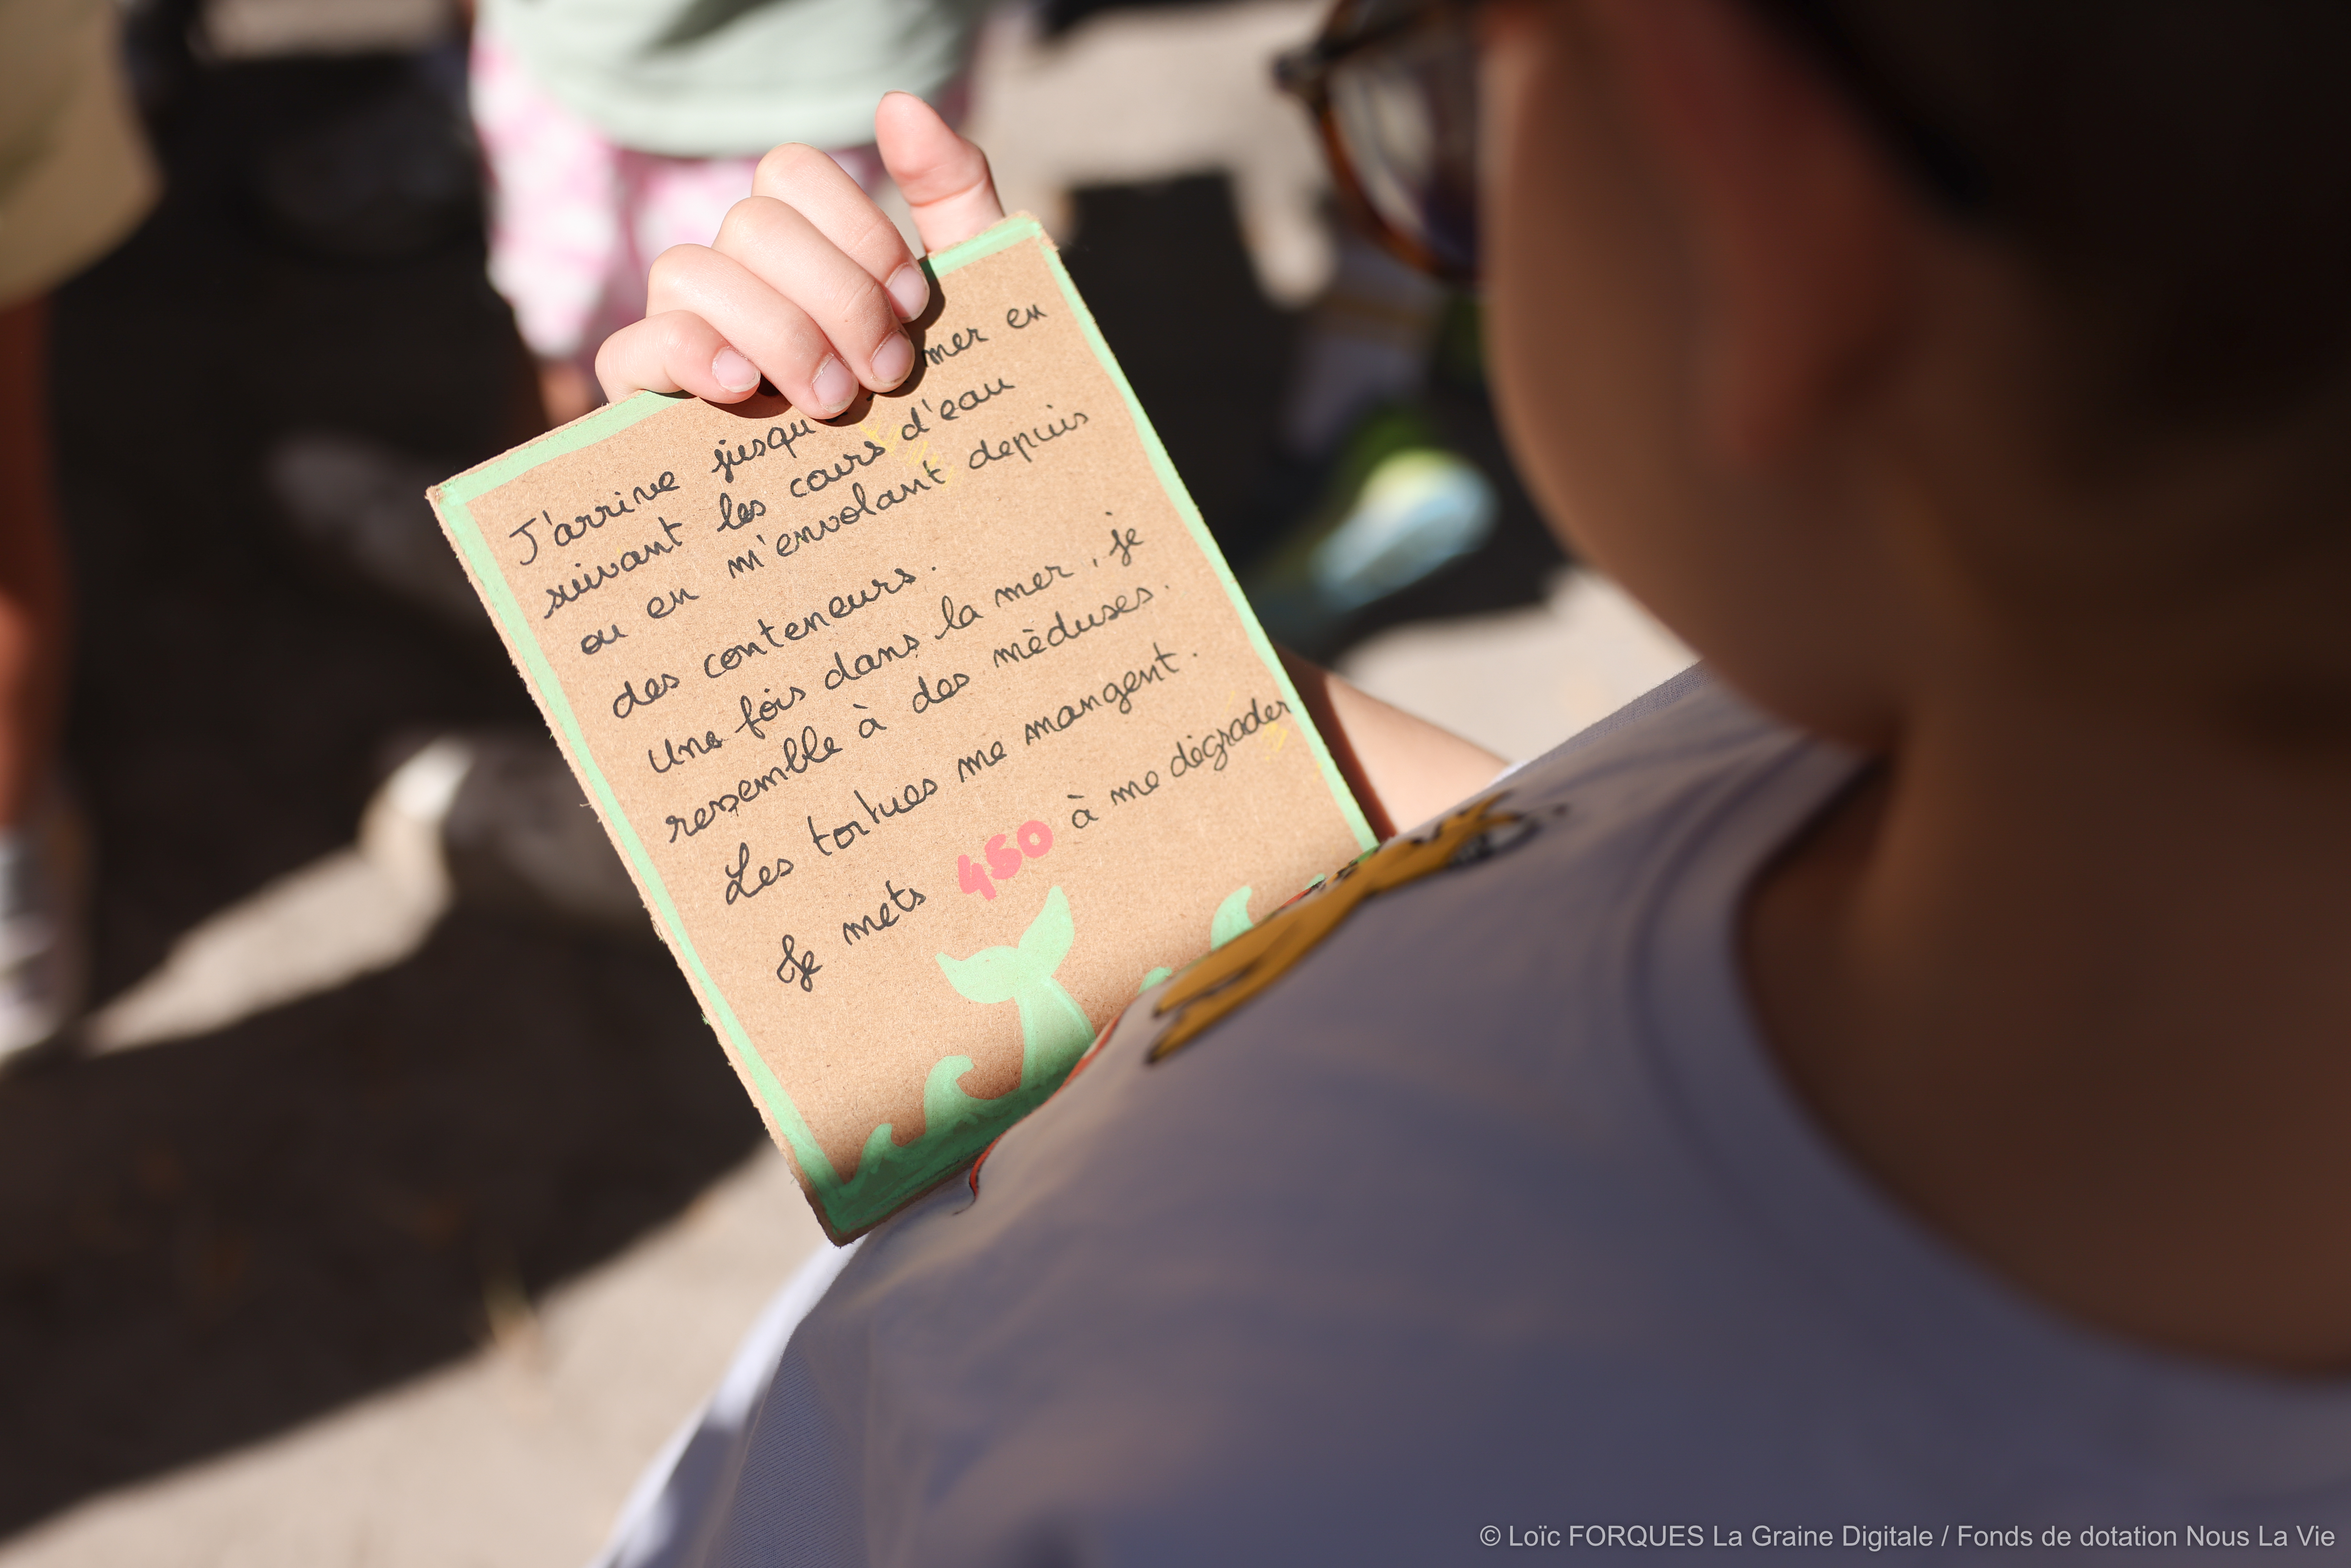 J'arrive jusqu mer en
suivant les cours d'eau
ou en m'envolant depuis
des conteneurs.
Une fois dans la mer, je
ressemble à des mèduses.
Les tortues me mangent.
Je mets 450 à me dégrader
© Loïc FORQUES La Graine Digitale / Fonds de dotation Nous La Vie